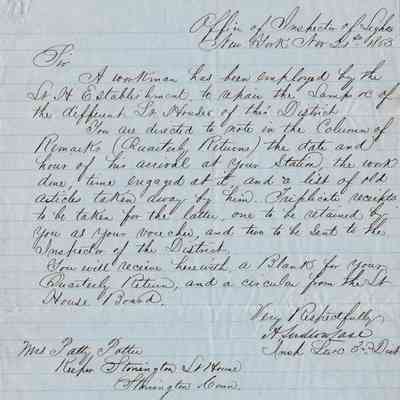 Office of Inspector of Lights
New York Nov 21st 1853
Sir
A workman has been employed by the
Lt. H Establishment, to repair the Lamps &c of
the different Lt. Houses of this District
You are directed to note in the Column of
Remarks (Quarterly Returns) the date and
hour of his arrival at your Station, the work
done, time engaged at it, and a list of old
articles taken away by him. Triplicate receipts
to be taken for the latter, one to be retained by
you as your voucher, and two to be sent to the
Inspector of the District.
You will receive herewith, a Blank for your
Quarterly Return, and a circular from the Lt
House Board.
Very Respectfully
A. Ludlow Case
Insp 3d Dist
Mrs Patty Potter
Keeper Stonington Lt House
Stonington Conn.